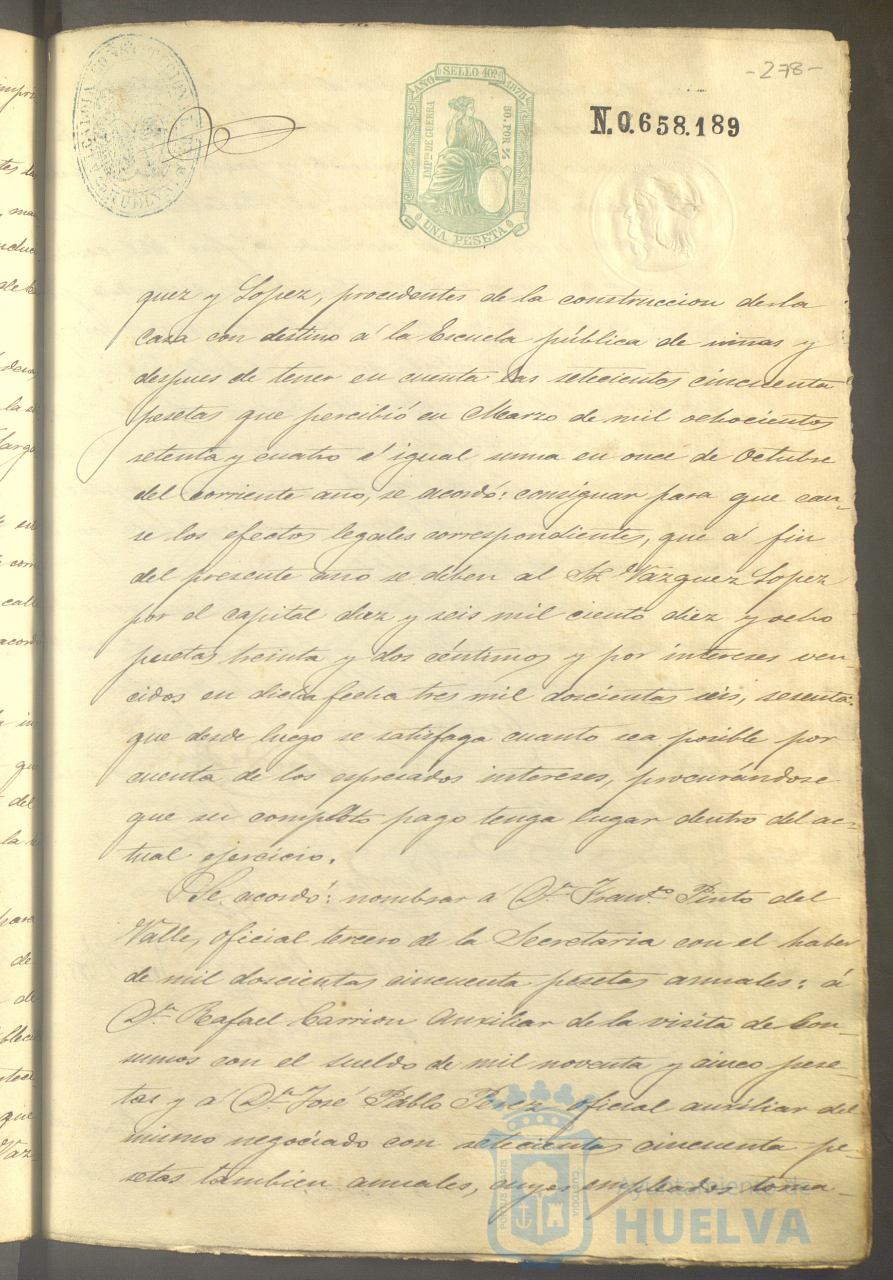 -278-
ALCALDIA CONSTITUCIONAL
HUELVA
AÑO SELLO 10º 1878
IMPTO DE GUERRA
50. POR %
UNA PESETA
N.0.658.189
quez y Lopez, procedentes de la construccion de la
Casa con destino á la Escuela pública de niñas y
despues de tener en cuenta las setecientas cincuenta
pesetas que percibió en Marzo de mil ochocientos
setenta y cuatro é igual suma en once de Octubre
del corriente año, se acordó: consignar para que cau-
se los efectos legales correspondientes, que á fin
del presente año se deben al Sr. Vazquez Lopez
por el capital diez y seis mil ciento diez y ocho
pesetas treinta y dos céntimos y por intereses ven-
cidos en dicha fecha tres mil doscientas seis, sesenta:
que desde luego se satisfaga cuanto sea posible por
cuenta de los espresados intereses, procurándose
que su completo pago tenga lugar dentro del ac-
tual ejercicio.
Se acordó: nombrar á Dn. Franco. Pinto del
Valle, oficial tercero de la Secretaria con el haber
de mil doscientas cincuenta pesetas anuales: á
Dn. Rafael Carrion Auxiliar de la visita de Con-
sumos con el sueldo de mil noventa y cinco pese-
tas y á Dn. José Pablo Perez oficial auxiliar del
mismo negociado con setecientas cincuenta pe-
setas tambien anuales, cuyos empleados toma-
PORTUS MARIS
CUSTODIA
Ayuntamiento de
HUELVA